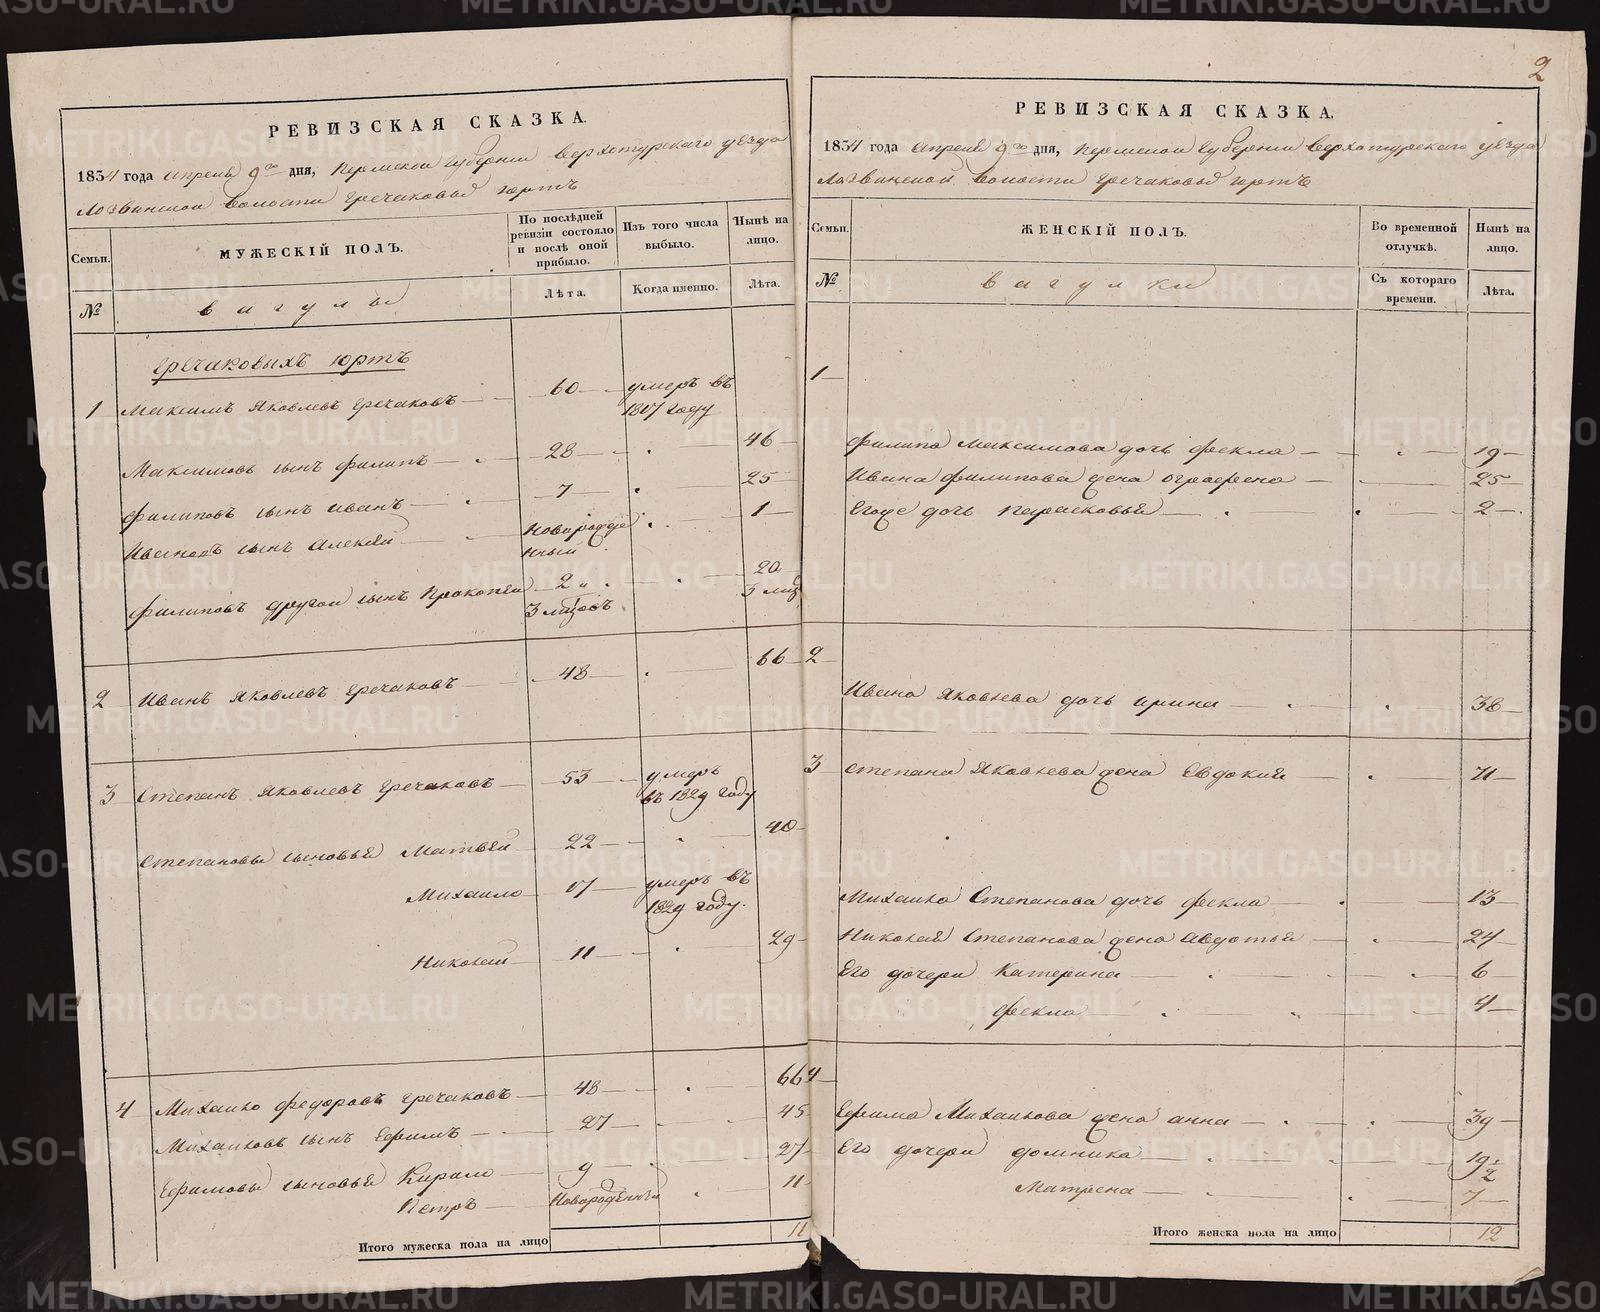 2
РЕВИЗСКАЯ СКАЗКА.
1834 года апреля 9го дня, Пермской губернии Верхотурскаго уезда
Лозвинской волости Еречаковы юртъ
Семьи.
МУЖЕСКІЙ ПОЛЪ.
По послѣдней ревизіи состояло и послѣ оной прибыло.
Изъ того числа выбыло.
Нынѣ на лицо.
№
вагулы
Лѣта.
Когда именно.
Лѣта.
Еречаковыхъ юртъ
1 Максимъ Яковлевъ Еречаковъ 60 умеръ въ 1817 году
Максимовъ сынъ Филипъ 28 46
Филиповъ сынъ Иванъ 7 25
Ивановъ сынъ Алексей новорожденный 1
Филиповъ другой сынъ Прокопей 2 20
3 мцовъ 3 мцв
2 Иванъ Яковлевъ Еречаковъ 48 66
3 Степанъ Яковлевъ Еречаковъ 53 умеръ въ 1829 году
Степановы сыновья Матвей 22 40
Михайло 17 умеръ въ 1829 году.
Николай 11 29
4 Михайло Федоровъ Еречаковъ 48 66
Михайловъ сынъ Ефимъ 27 45
Ефимовы сыновья Кирило 9 27
Петръ Новорожденный 11
Итого мужеска пола на лицо 11
РЕВИЗСКАЯ СКАЗКА.
1834 года апреля 9го дня, Пермской Губернии Верхотурскаго уезда
Лозвинской волости Еречаковы юртъ
Семьи.
ЖЕНСКІЙ ПОЛЪ.
Во временной отлучкѣ.
Нынѣ на лицо.
№
вагулки
Съ котораго времени.
Лѣта.
1
Филипа Максимова дочь Фекла 19
Ивана Филипова жена Ографена 25
Егоже дочь Парасковья 2
2
Ивана Яковлева дочь Ирина 38
3 Степана Яковлева жена Евдокия 71
Михайла Степанова дочь Фекла 13
Николая Степанова жена Авдотья 24
Его дочери Катерина 6
Фекла 4
4
Ефима Михайлова жена Анна 39
Его дочери Домника 19 1/2
Матрена 7
Итого женска пола на лицо 12
METRIKI.GASO-URAL.RU